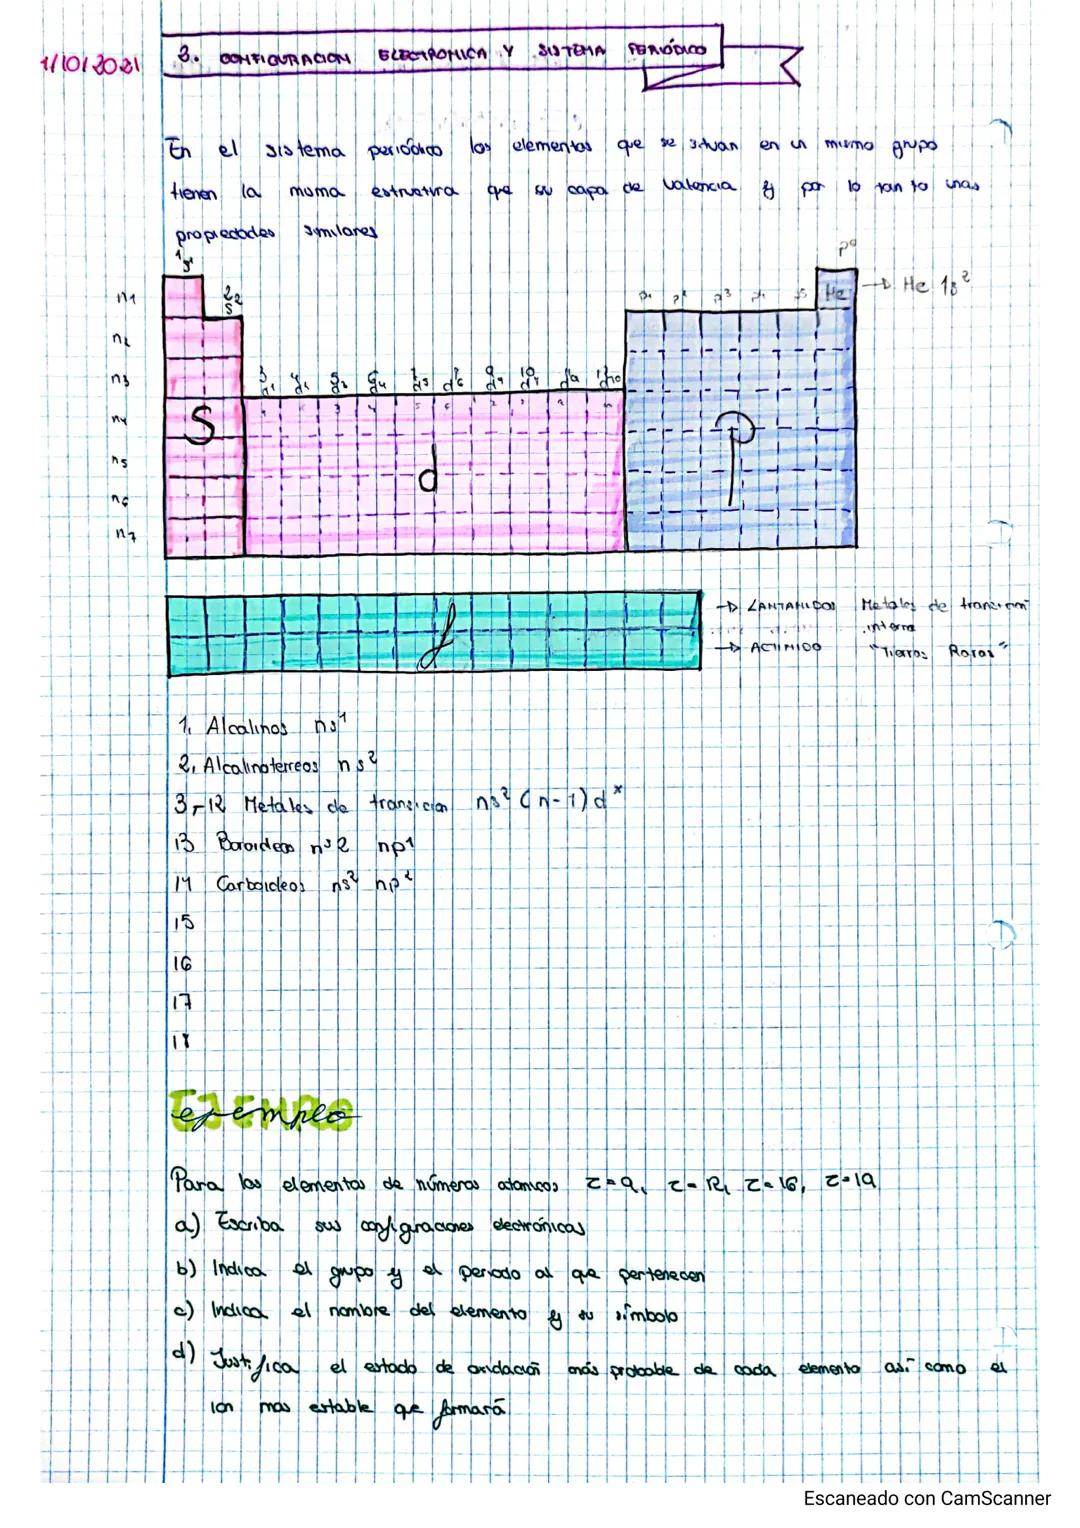 1/10/2021
3. CONFIGURACION ELECTRONICA Y SISTEMA PERIÓDICO
En el sistema periódico los elementos que se situan en un mismo grupo
tienen la misma estructura que su capa de valencia y por lo tan to unas
propiedades similares
1 s1
2 s2
p1 p2 p3 p4 p5 p6
He → He 1s²
n1
n2
n3
n4
n5
n6
n7
S
d
P
f
→ LANTANIDOS Metales de transicion
interna
→ ACTINIDO "Tierras Raras"
1. Alcalinos ns1
2. Alcalinoterreos ns2
3-12 Metales de transicion ns² (n-1) dˣ
13 Boroideos ns2 np1
14 Carboideos ns² np²
15
16
17
18
EJEMPLO
ejemplo
Para los elementos de números atomicos z=9, z=12, z=16, z=19
a) Escriba sus configraciones electrónicas
b) Indica el grupo y el periodo al que pertenecen
c) Indica el nombre del elemento y su símbolo
d) Justifica el estado de oxidación más probable de cada elemento así como el
ion mas estable que formará
Escaneado con CamScanner